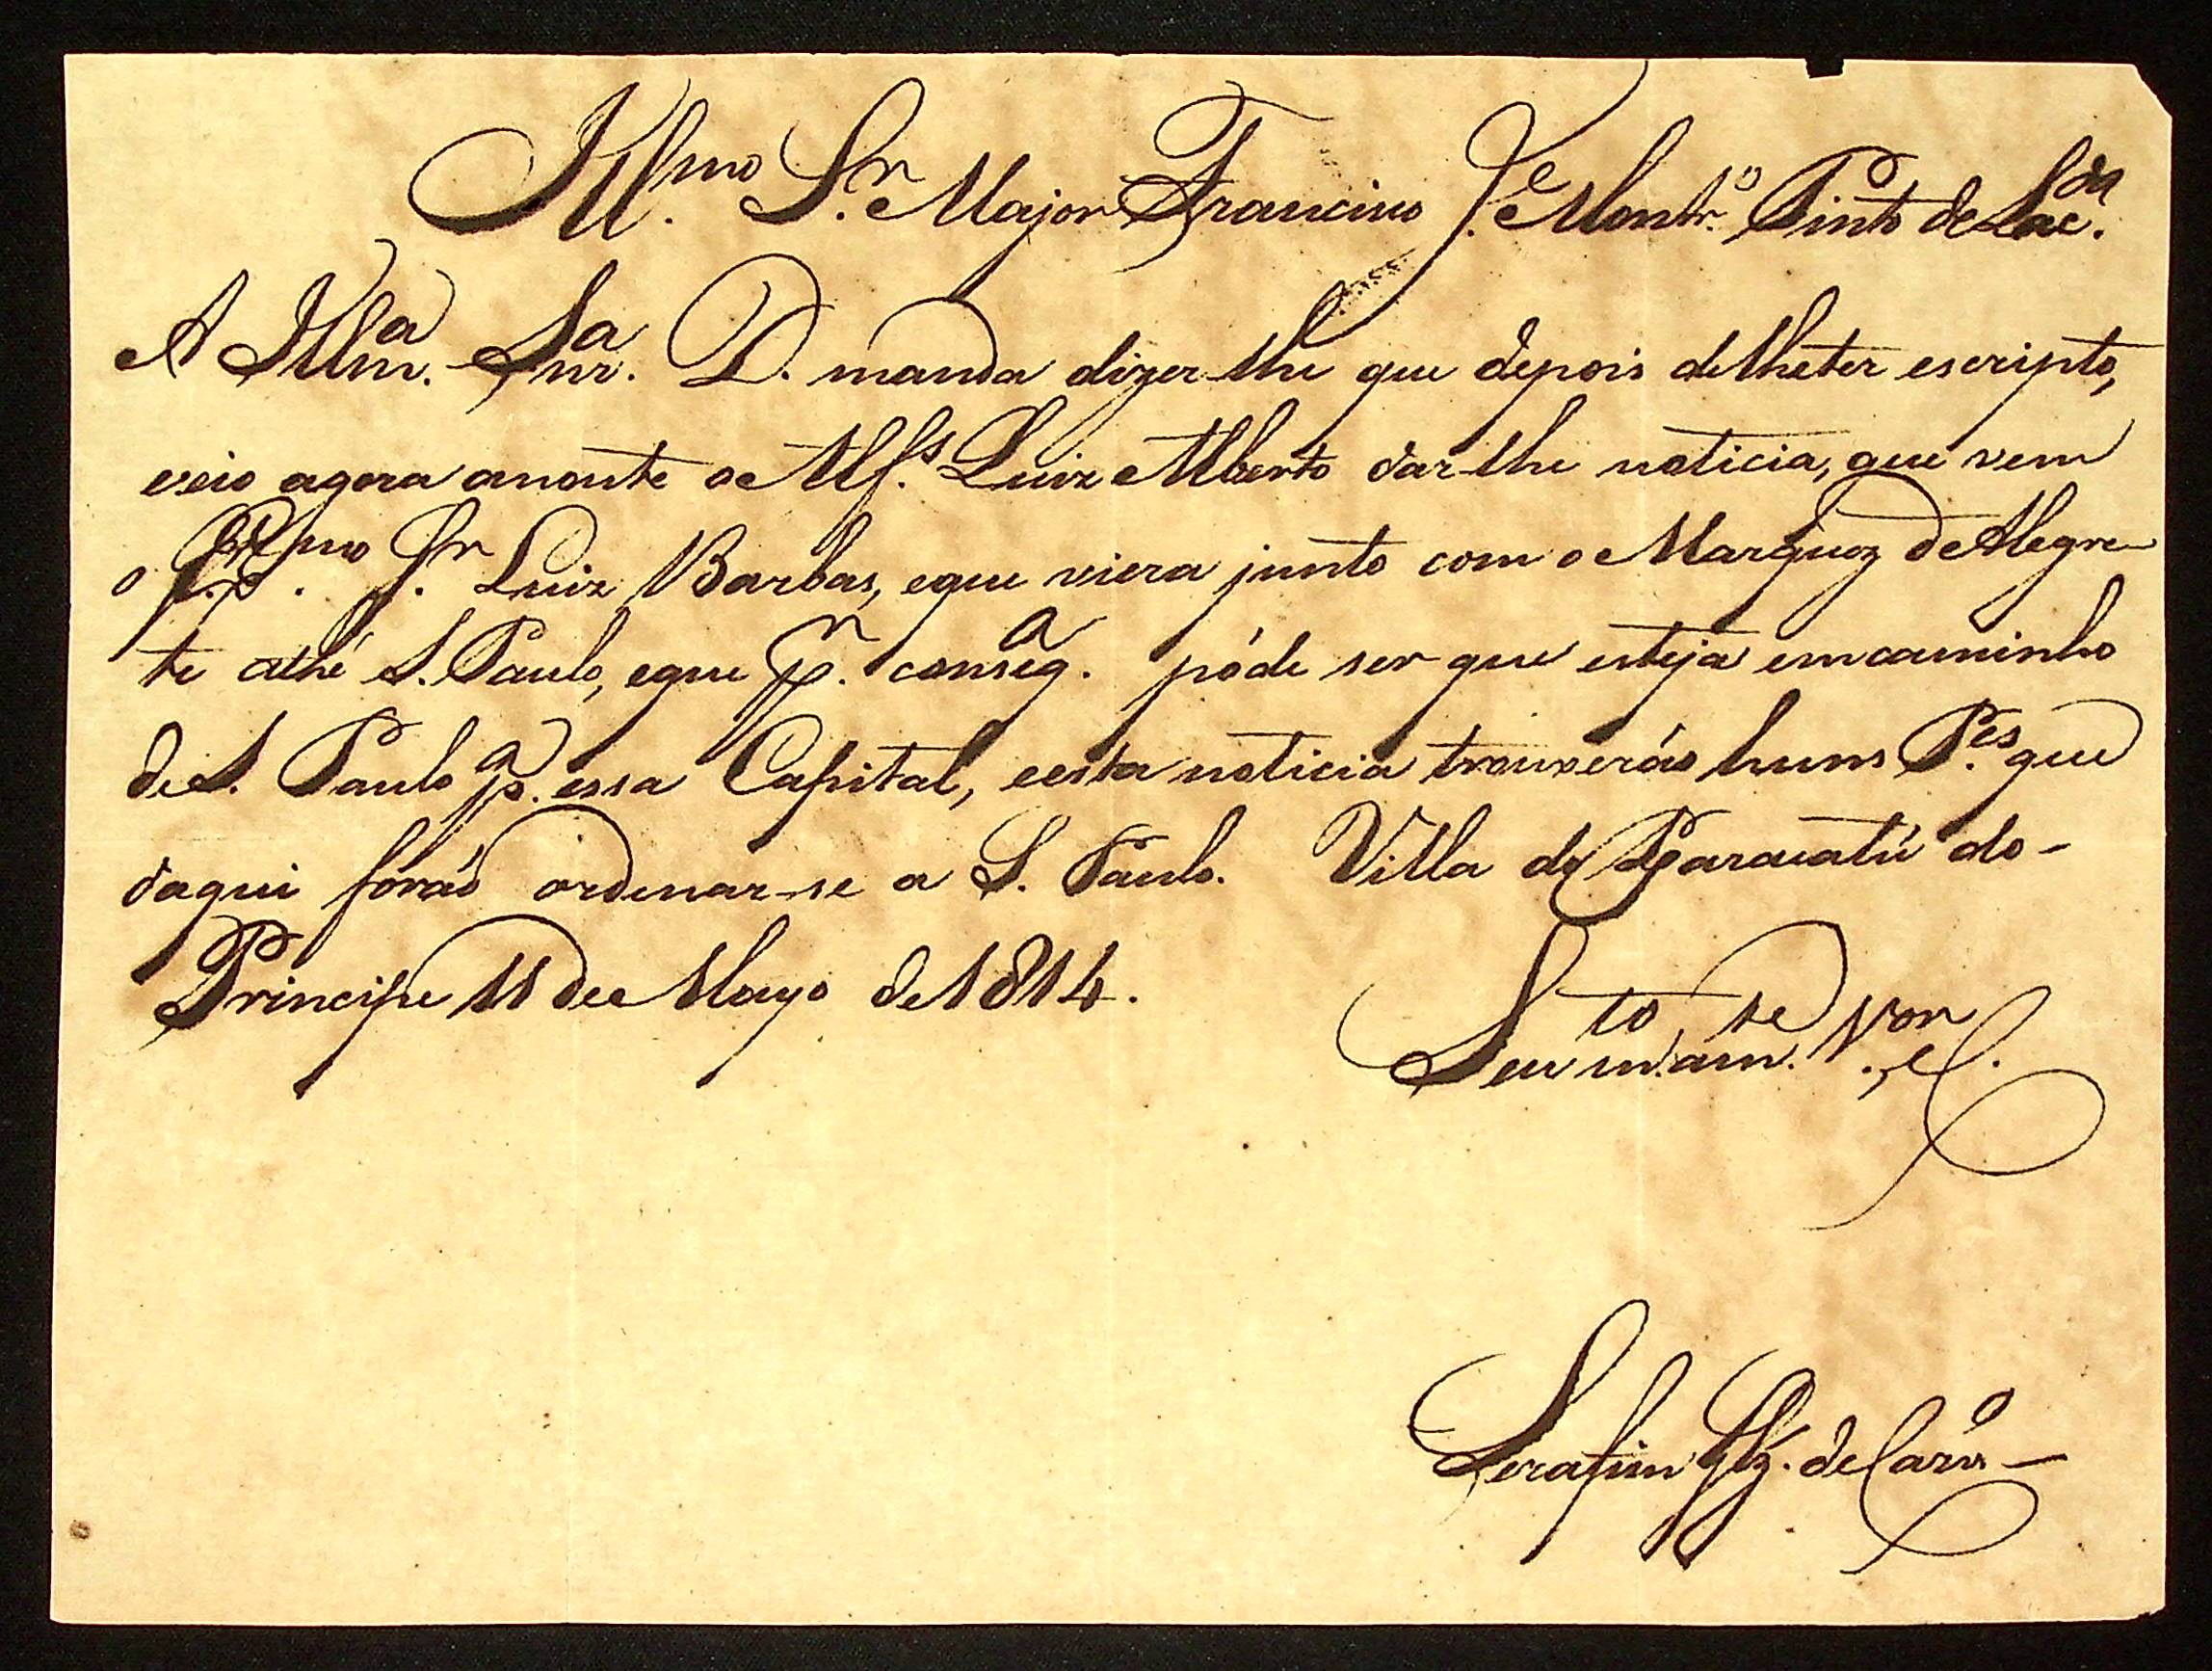 Illmo. Sr. Major Francisco Je. Montro. Pinto de Lacda.
A Illma. Snra. D. manda dizer lhe que depois de lhe ter escripto,
veio agora anoute o Alfs. Luiz Alberto dar lhe noticia, que vem
o Sr. Luiz Barbas, eque viera junto com o Marquez de Alegre-
te athé S. Paulo, eque pr. conseqa. póde ser que esteja em caminho
de S. Paulo pa. essa Capital, eesta noticia trouxeráo huns Pes. que
daqui foráo ordenar-se a S. Paulo. Villa de Paracatú do-
Principe 11 de Mayo de 1814.
Seu mto. amte. Vor.
Serafim Glz. de Carvo.